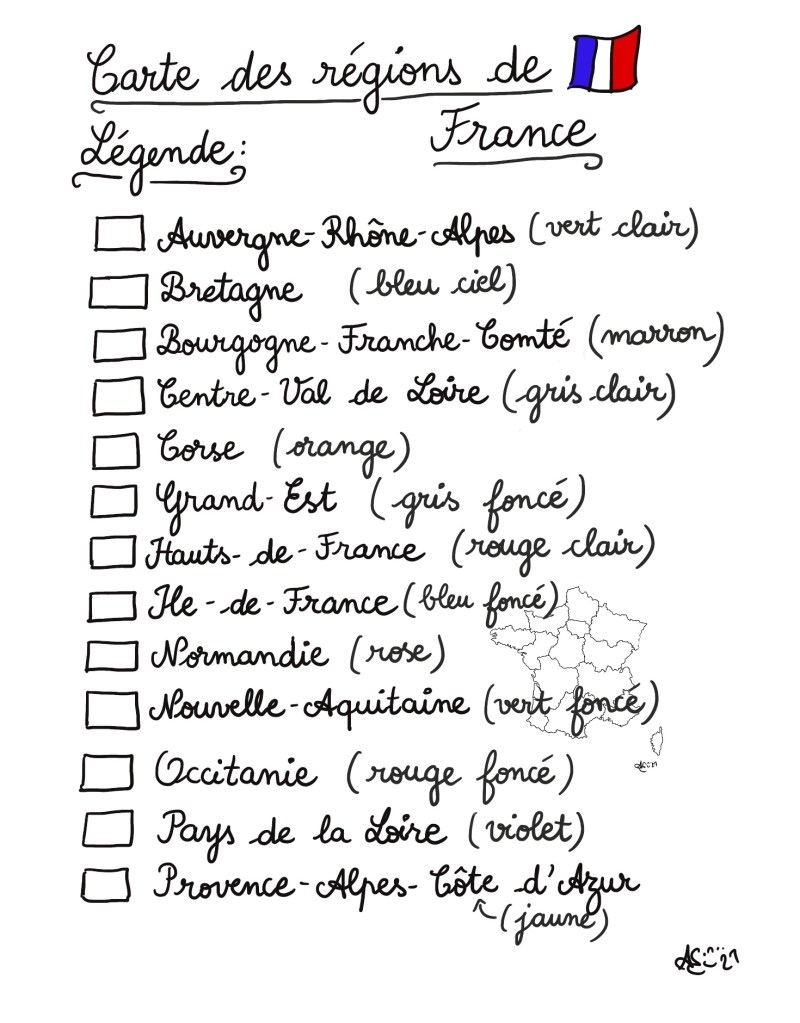 Carte des régions de
France
Légende:
Auvergne-Rhône-Alpes (vert clair)
Bretagne (bleu ciel)
Bourgogne-Franche-Comté (marron)
Centre-Val de Loire (gris clair)
Corse (orange)
Grand-Est (gris foncé)
Hauts-de-France (rouge clair)
Ile-de-France (bleu foncé)
Normandie (rose)
Nouvelle-Aquitaine (vert foncé)
Occitanie (rouge foncé)
Pays de la Loire (violet)
Provence-Alpes-Côte d'Azur
(jaune)